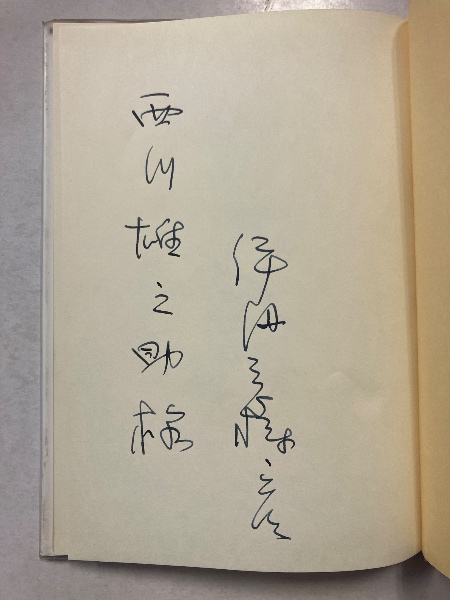 伊丹三樹彦
西川雄之助様